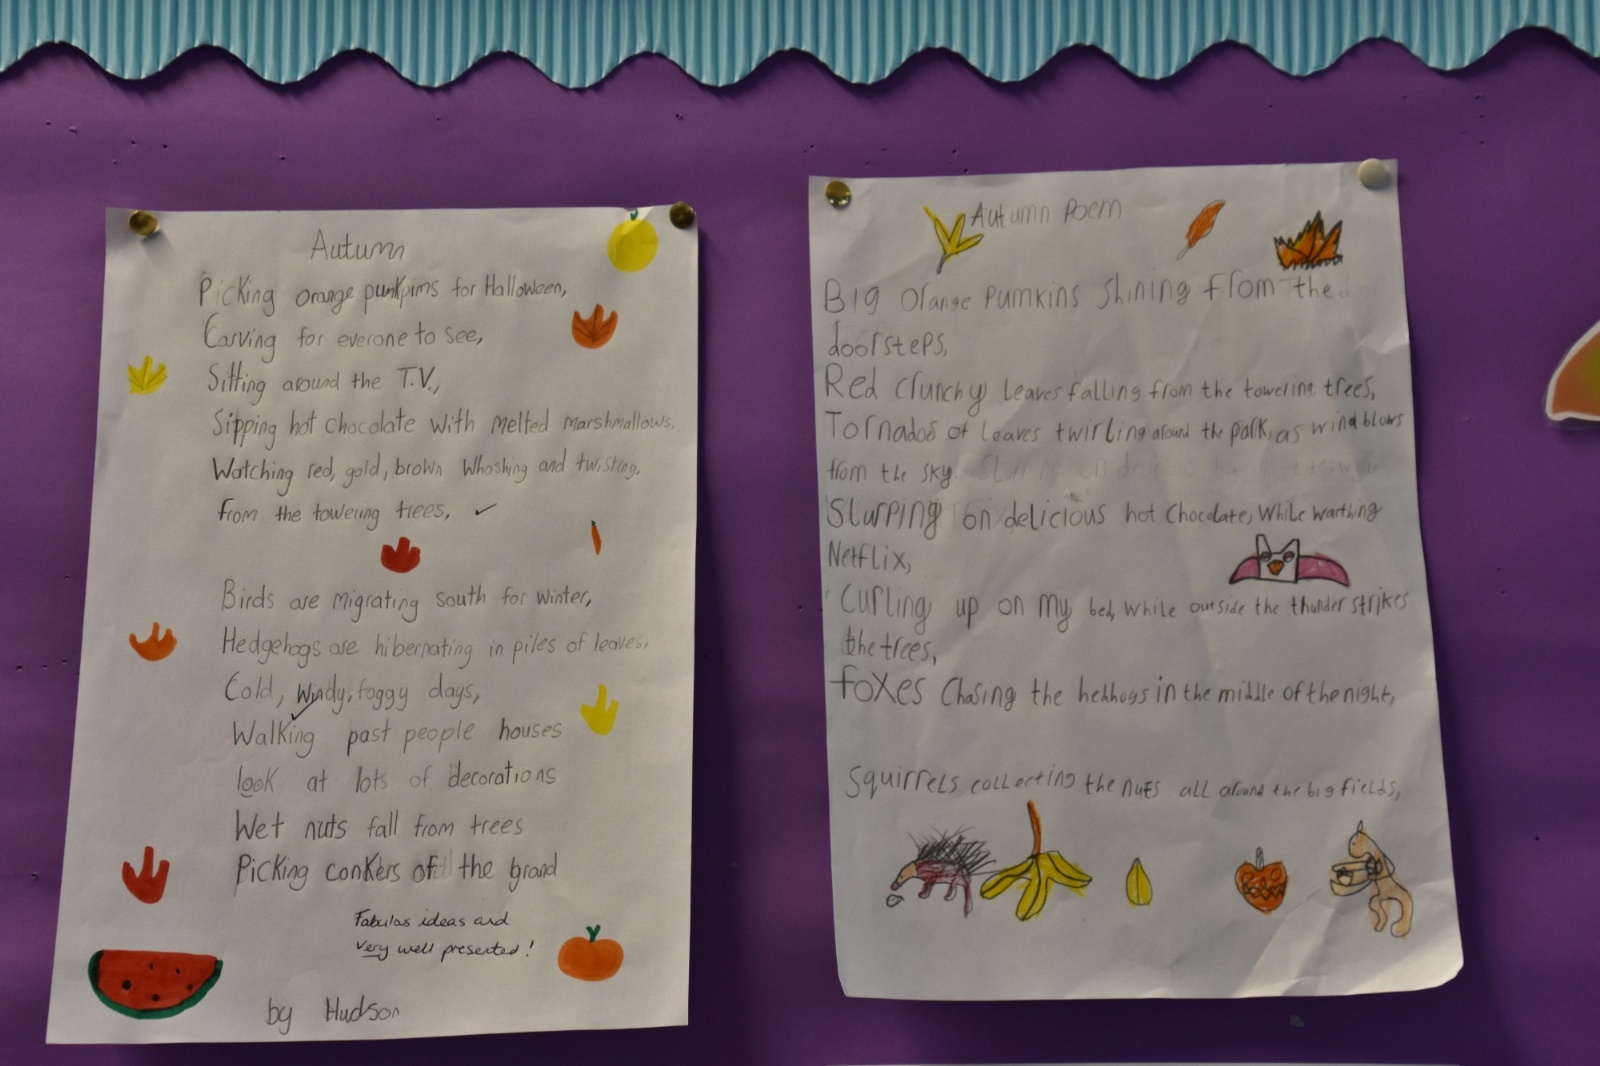 Autumn
Picking orange punkpims for Halloween,
Carving for everone to see,
Sitting around the T.V.,
Sipping hot chocolate with melted marshmallows.
Watching red, gold, brown Whoshing and twisting,
from the towering trees,
Birds are migrating south for winter,
Hedgehogs are hibernating in piles of leaves,
Cold, windy, foggy days,
Walking past people houses
look at lots of decorations
Wet nuts fall from trees
Picking conkers of the grand
Fabulas ideas and
very well presented!
by Hudson
Autumn Poem
Big orange Pumkins shining from the
doorsteps,
Red crunchy leaves falling from the towering trees,
Tornados of leaves twirling around the park, as wind blows
from the sky
Slurping on delicious hot Chocolate, While warthing
Netflix,
Curling up on my bed, while outside the thunder strikes
the trees,
foxes Chasing the hedhogs in the middle of the night,
Squirrels collecting the nuts all around the big fields,